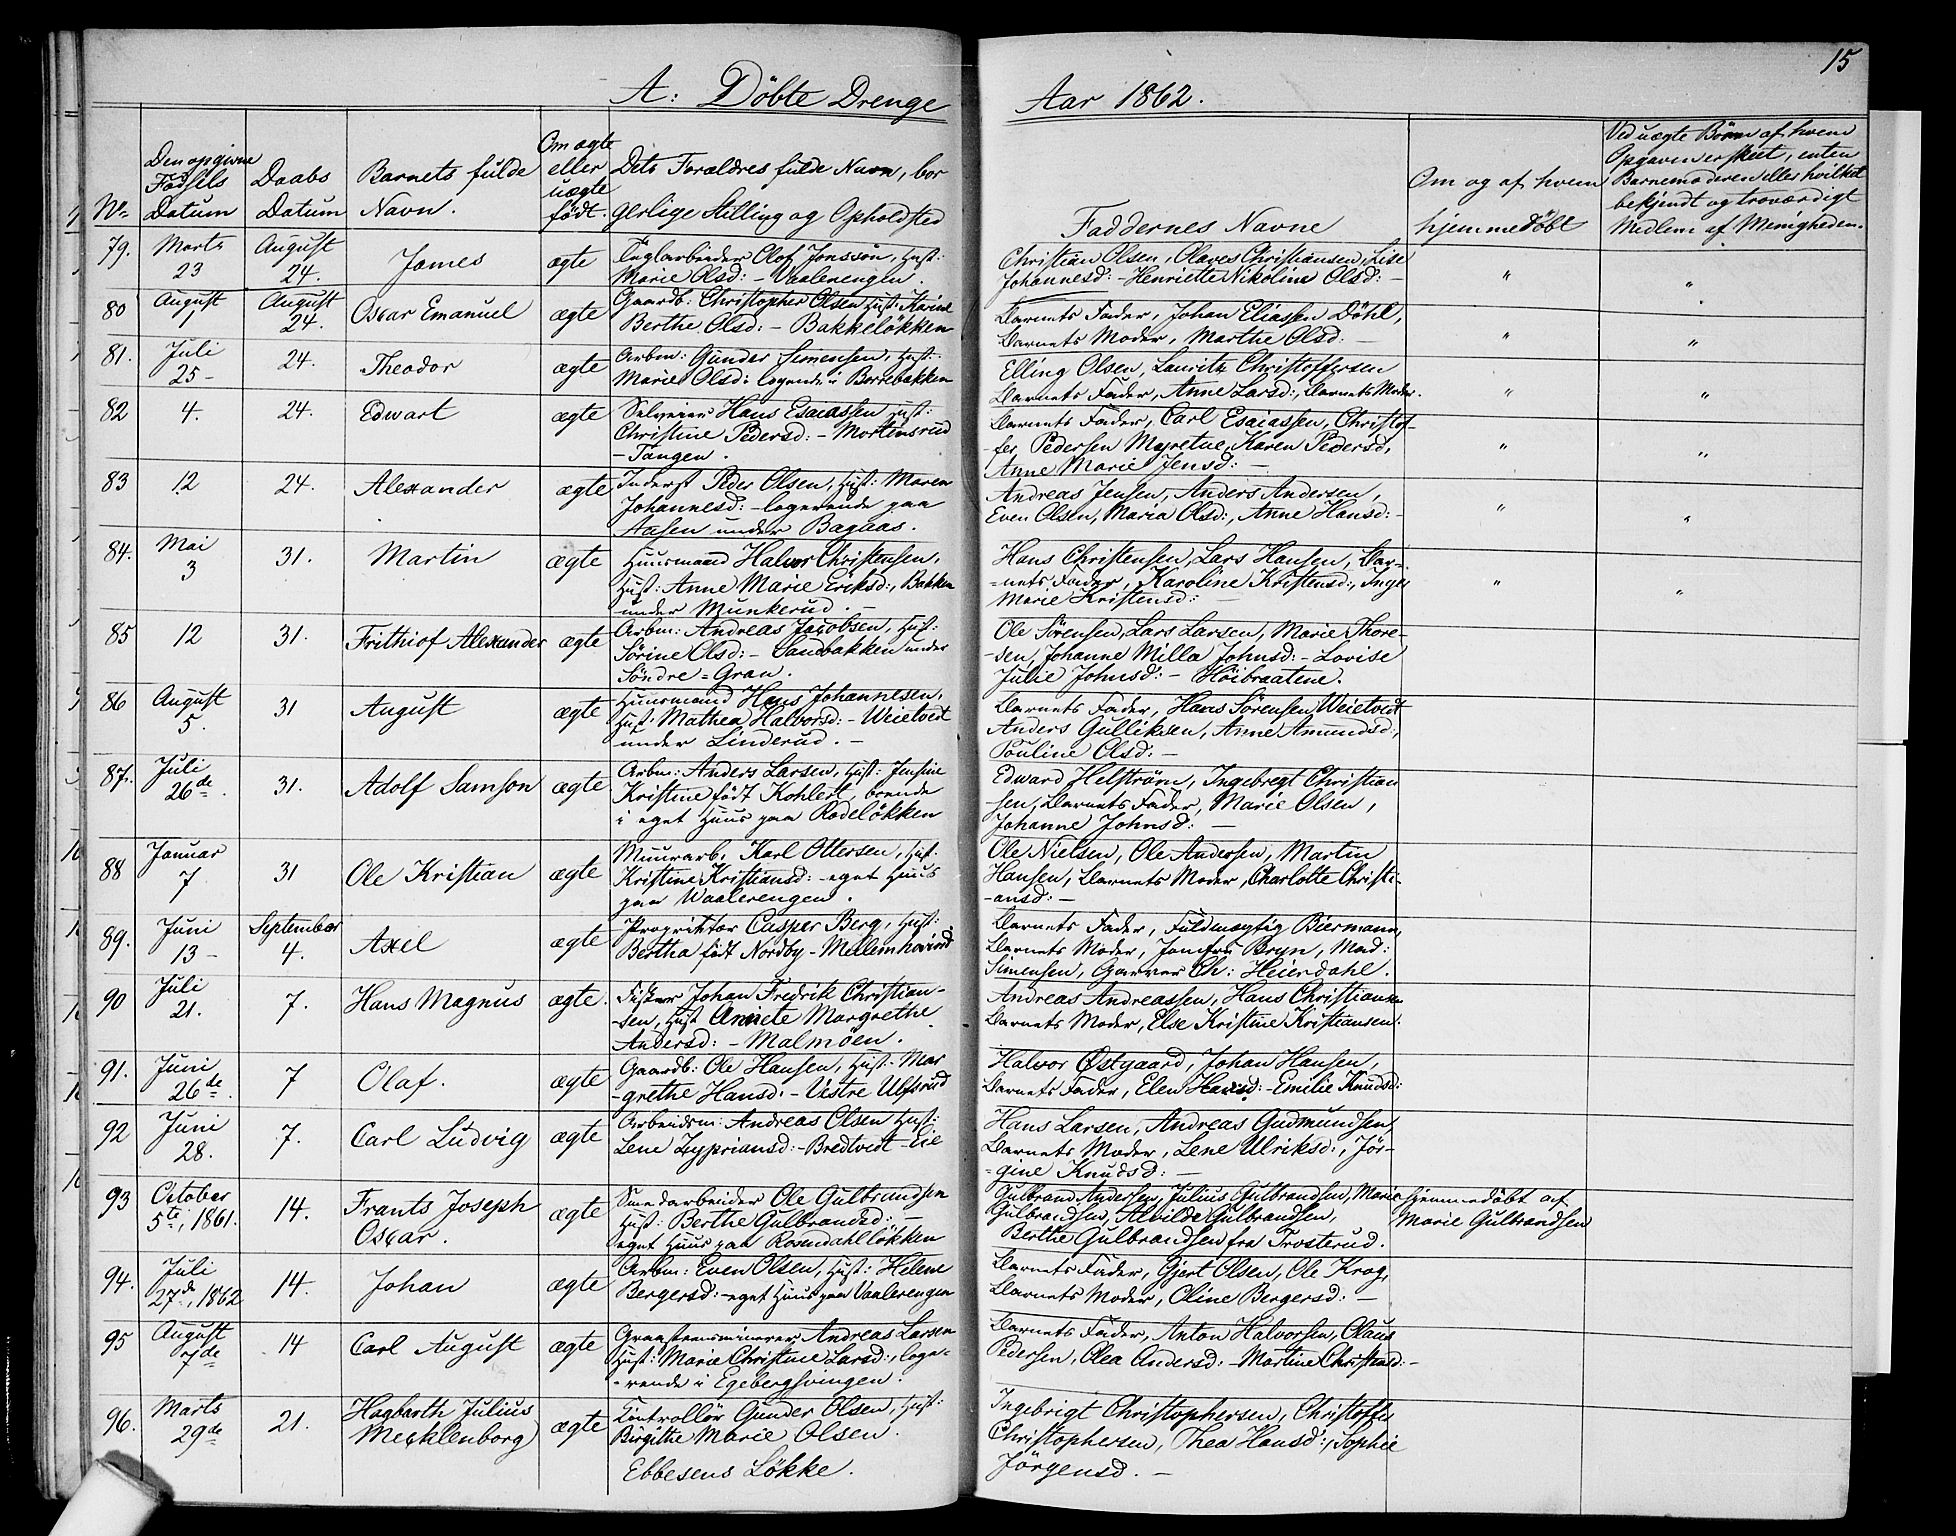 15
A: Döbte Drenge Aar 1862.
No. Den opgivne Fødsels Datum Daabs Datum Barnets fulde Navn. Om ægte eller uægte födt. Dets Forældres fulde Navn, borgerlige Stilling og Opholdsted Faddernes Navne Om og af hvem hjemmedöbt Ved uægte Börn af hvem Opgaven er skeet, enten Barnemoderen eller hvilket bekjendt og troværdigt Medlem af Menigheden.
79. Marts 23 August 24. James ægte Teglarbeider Olof Jonsson, Hust:
Marie Olsd: - Vaalerengen.
Christian Olsen, Olaves Christiansen, Lise
Johannesd: - Henriette Nikoline Olsd: -
" "
80 August 1 August 24. Oscar Emanuel ægte Gaardb: Christopher Olsen Hust: Karine
Berthe Olsd: - Bakkeløkken
Barnets Fader, Johan Eliassen Döhl,
Barnets Moder, Marthe Olsd: -
" "
81. Juli 25 - 24. Theodor ægte Arbm: Gunder Simensen, Hust:
Marie Olsd: logende i Borrebakken
Elling Olsen, Lauritz Christoffersen
Barnets Fader, Anne Larsd:, Barnets Moder.
" "
82 4. 24. Edwart ægte Selveier Hans Esaiassen Hust:
Christine Pedersd: - Mortensrud
- Tangen.
Barnets Fader, Carl Esaiassen, Christof-
fer Pedersen Myretue, Karen Pedersd,
Anne Marie Jensd: -
" "
83 12 24. Alexander ægte Inderst Peder Olsen, Hust: Maren
Johannesd: - logerende paa
Aasen under Bagaas.
Andreas Jensen, Anders Andersen,
Even Olsen, Maria Olsd:, Anne Hansd: -
" "
84. Mai 3 31. Martin ægte Huusmand Halvor Christensen,
Hust: Anne Marie Eriksd:, Bakken
under Munkerud. -
Hans Christensen, Lars Hansen, Bar-
-nets Fader, Karoline Kristensd:, Inger
Marie Kristensd: -
" "
85 12 31. Frithiof Alexander ægte Arbm: Andreas Jacobsen, Hust:
Sörine Olsd: - Sandbakken under
Söndre = Gran.
Ole Sörensen, Lars Larsen, Marie Thore-
-sen, Johanne Milla Johnsd: - Lovise
Julie Johnsd: - Höibraatene.
86 August 5. 31 August ægte Huusmand Hans Johannesen,
Hust: Mathea Halvorsd: - Weietvedt
under Linderud. -
Barnets Fader, Hans Sörensen Weietvedt
Anders Gulliksen, Anne Amundsd:,
Pouline Olsd: -
87. Juli 26de. 31. Adolf Samson ægte Arbm: Anders Larsen, Hust: Jensine
Kristine födt Kohlert, boende
i eget Huus paa Rodeløkken
Edward Helström, Ingebregt Christian
-sen, Barnets Fader, Marie Olsen,
Johanne Johnsd: -
88 Januar 7 31 Ole Kristian ægte Muurarb. Karl Ottersen, Hust:
Kristine Kristiansd: - eget Huus
paa Waalerengen.
Ole Nielsen, Ole Andersen, Martin
Hansen, Barnets Moder, Charlotte Christi-
-ansd: -
89. Juni 13 - September 4. Axel ægte Proprietær Casper Berg, Hust:
Bertha født Nordby - Mellemhovind
Barnets Fader, Fuldmægtig Biermann,
Barnets Moder, Jomfru Bryn, Mad:
Simensen, Garver Ch: Heierdahl.
90 Juli 21. 7. Hans Magnus ægte. Fisker Johan Fredrik Christian-
-sen, Hust Anniete Margrethe
Andersd: - Malmöen.
Andreas Andreassen, Hans Christiansen
Barnets Moder, Else Kristine Kristiansen.
91. Juni 26de. 7 Olaf. ægte Gaardb: Ole Hansen, Hust: Mar
-grethe Hansd: - Vestre Ulfsrud
Halvor Østgaard, Johan Hansen,
Barnets Fader, Elen Hansd: - Emilie Knudsd:
92 Juni 28. 7. Carl Ludvig ægte Arbeidsm: Andreas Olsen Hust:
Lene Zyprians d: - Bredtvedt - Eie
Hans Larsen, Andreas Gudmundsen,
Barnets Moder, Lene Ulriksd:, Jör-
-gine Knudsd: -
93 October 5te, 1861. 14. Frants Joseph Oscar. ægte Smedarbeider Ole Gulbrandsen
Hust: Berthe Gulbrandsd: -
eget Huus paa Rosendahlløkken
Gulbrand Andersen, Julius Gulbrandsen, Marie
Gulbrandsen, Alvilde Gulbrandsen,
Berthe Gulbrandsen fra Trosterud.
Hjemmedöbt af
Marie Gulbrandsen
94. Juli 27de, 1862 14. Johan ægte Arbm: Even Olsen, Hust: Helene
Bergersd: - eget Huus paa Vaalerengen
Barnets Fader, Gjert Olsen, Ole Krog,
Barnets Moder, Oline Bergersd: -
95 August 7de 14 Carl August ægte Graastensminerer Andreas Larsen
Hust: Marie Christine Larsd:, loge-
-rende i Egebergsvingen.
Barnets Fader, Anton Halvorsen, Olaus
Pedersen, Olea Andersd: - Martine Christensd: -
96. Marts 29de 21. Hagbarth Julius Mecklenborg) ægte Kontrollör Gunder Olsen, Hust:
Birgithe Marie Olsen.
Ebbesens Løkke.
Ingebrigt Christophersen, Christoffer
Christophersen, Thea Hansd:, Sophie
Jörgensd. -